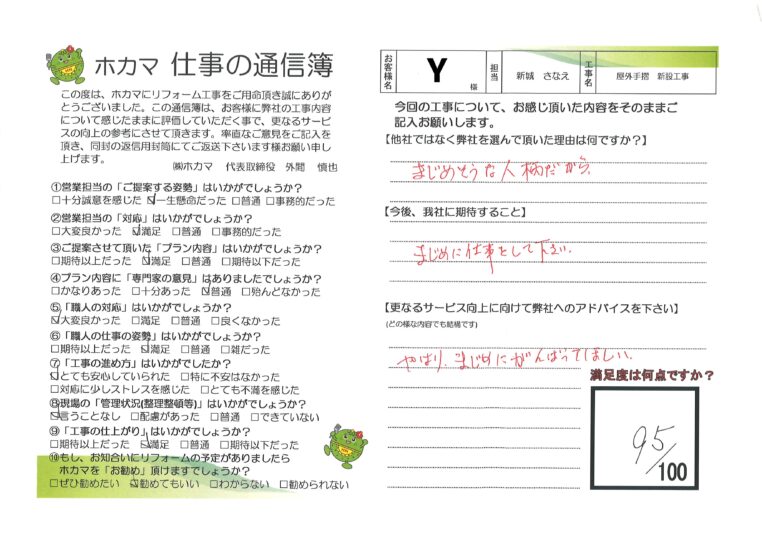 ホカマ 仕事の通信簿
この度は、ホカマにリフォーム工事をご用命頂き誠にありが
とうございました。この通信簿は、お客様に弊社の工事内容
について感じたままに評価していただく事で、更なるサービ
スの向上の参考にさせて頂きます。率直なご意見をご記入を
頂き、同封の返信用封筒にてご返送下さいます様お願い申し
上げます。
㈱ホカマ 代表取締役 外間 慎也
①営業担当の「ご提案する姿勢」はいかがでしょうか?
□十分誠意を感じた ☑一生懸命だった □普通 □事務的だった
②営業担当の「対応」はいかがでしょうか?
□大変良かった ☑満足 □普通 □事務的だった
③ご提案させて頂いた「プラン内容」はいかがでしょうか?
□期待以上だった ☑満足 □普通 □期待以下だった
④プラン内容に「専門家の意見」はありましたでしょうか?
□かなりあった □十分あった ☑普通 □殆んどなかった
⑤「職人の対応」はいかがでしょうか?
☑大変良かった □満足 □普通 □良くなかった
⑥「職人の仕事の姿勢」はいかがでしょうか?
□期待以上だった ☑満足 □普通 □雑だった
⑦「工事の進め方」はいかがでしたか?
☑とても安心していられた □特に不安はなかった
□対応に少しストレスを感じた □とても不満を感じた
⑧現場の「管理状況(整理整頓等)」はいかがでしょうか?
☑言うことなし □配慮があった □普通 □できていない
⑨「工事の仕上がり」はいかがでしょうか?
□期待以上だった ☑満足 □普通 □期待以下だった
⑩もし、お知合いにリフォームの予定がありましたら
ホカマを「お勧め」頂けますでしょうか?
□ぜひ勧めたい ☑勧めてもいい □わからない □勧められない
お客様名 Y 様 担当 新城 さなえ 工事名 屋外手摺 新設工事
今回の工事について、お感じ頂いた内容をそのままご
記入お願いします。
【他社ではなく弊社を選んで頂いた理由は何ですか?】
まじめそうな人柄だから。
【今後、我社に期待すること】
まじめに仕事をして下さい。
【更なるサービス向上に向けて弊社へのアドバイスを下さい】
(どの様な内容でも結構です)
やはり、まじめにがんばってほしい。
満足度は何点ですか?
95/100